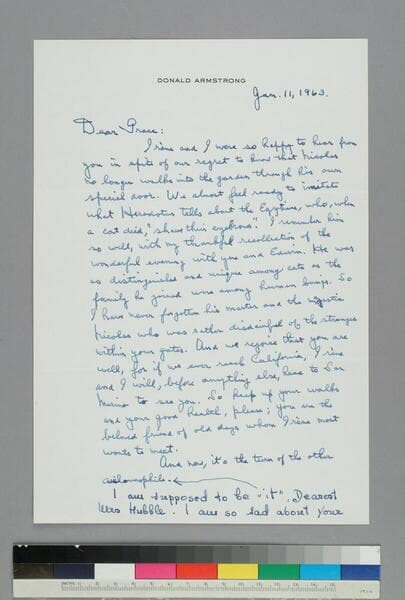 DONALD ARMSTRONG
Jan. 11, 1963.
Dear Grace:
Irène and I were so happy to hear from
you in spite of our regret to know that Nicolas
no longer walks into the garden through his own
special door. We almost feel ready to imitate
what Herodotus tells about the Egyptians, who, when
a cat died, "shave their eyebrows". I remember him
so well, with my thankful recollection of the
wonderful evening with you and Edwin. He was
as distinguished and unique among cats as the
family he joined were among human beings. So
I have never forgotten his master and the majestic
Nicolas who was rather disdainful of the strangers
within your gates. And we rejoice that you are
well, for if we ever reach California, Irène
and I will, before anything else, come to San
Marino to see you. So keep up your walks
and your good health, please; you are the
beloved friend of old days whom Irène most
wants to meet.
And now, it's the turn of the other
ailurophile.
I am supposed to be "it", Dearest
Mrs Hubble. I am so sad about your